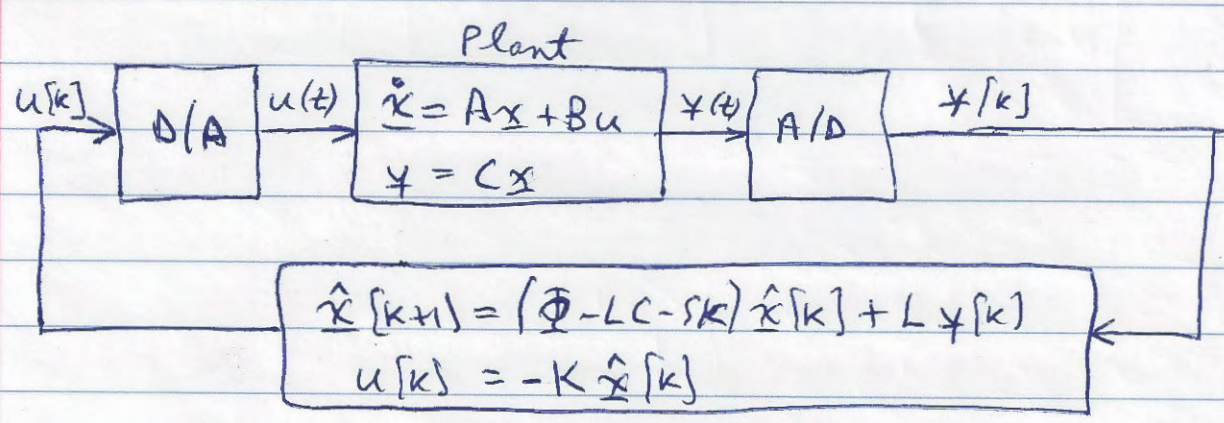 Plant
u[k] D/A u(t) ẋ = Ax + Bu y(t) A/D y[k]
y = Cx
x̂[k+1] = (Φ-LC-ΓK) x̂[k] + L y[k]
u[k] = -K x̂[k]